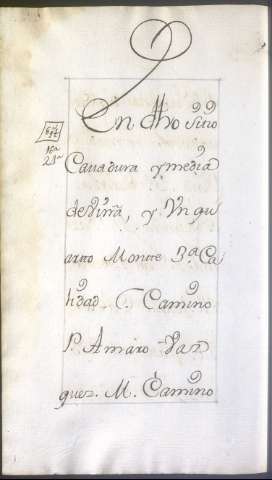 En dho Sitio
Cauadura y media
de Viña, y Vn qu
arto Monte 3.ª Ca
lidad L. Camino
P. Amaro Vaz
quez. M. Camino